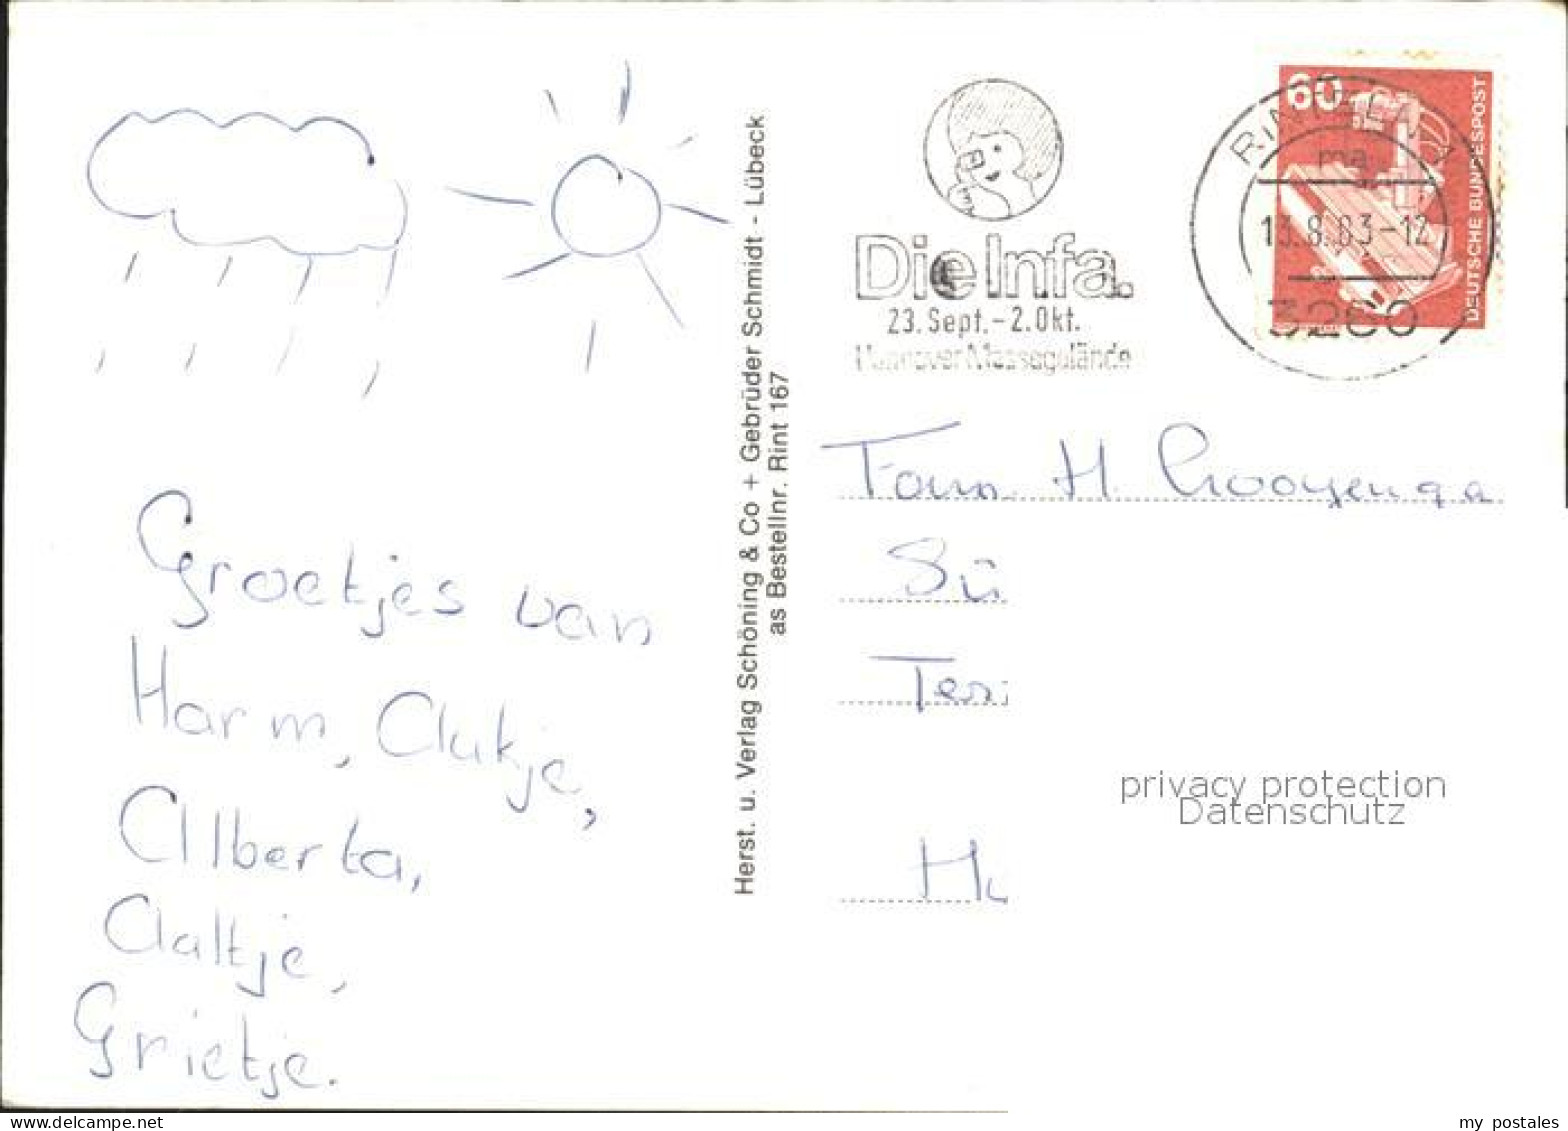 Groetjes van
Harm, Aukje,
Alberta,
Aaltje,
Grietje.
Herst. u. Verlag Schöning & Co + Gebrüder Schmidt - Lübeck
as Bestellnr. Rint 167
Die Infa.
23. Sept. - 2. Okt.
Hannover Messegelände
60
DEUTSCHE BUNDESPOST
13.8.83-12
3260
Fam. H.
Sü
Ter
privacy protection
Datenschutz
my postales